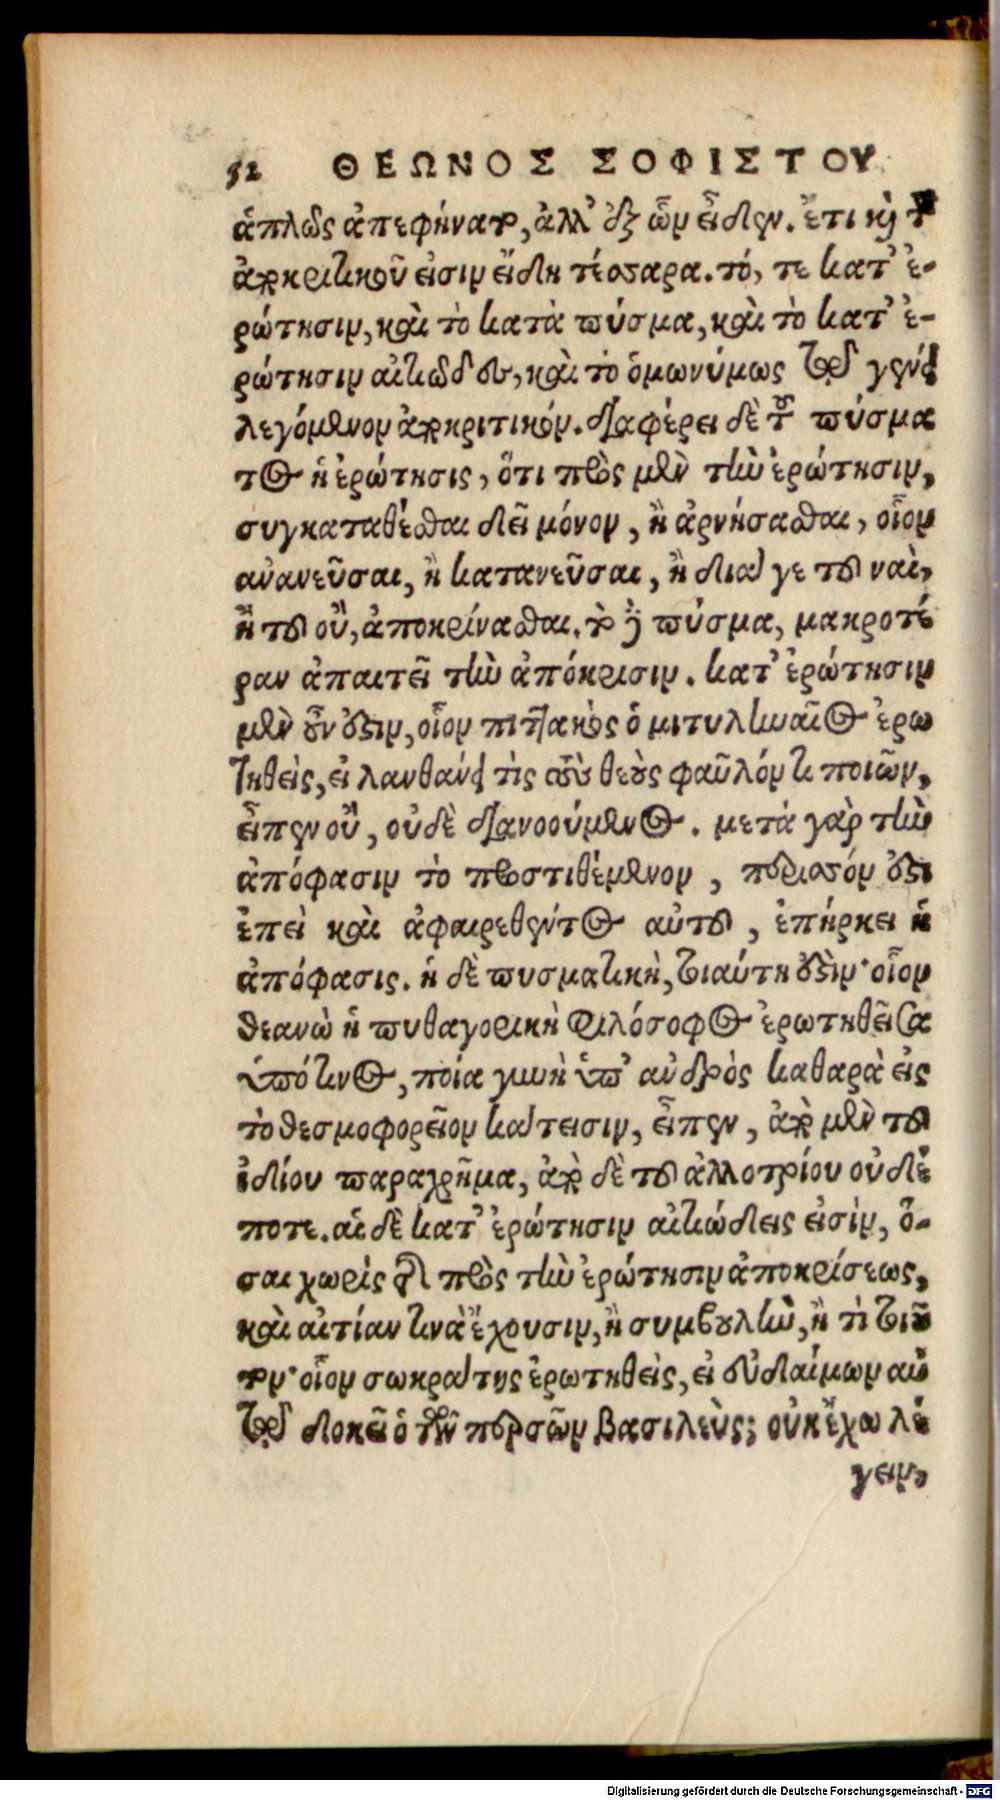 52 ΘΕΩΝΟΣ ΣΟΦΙΣΤΟΥ
ἁπλῶς ἀπεφήνατο, ἀλλ' ἐξ ὧν εἶδεν. ἔτι καὶ τοῦ
ἀποκριτικοῦ εἰσιν εἴδη τέσσαρα. τό, τε κατ' ἐ-
ρώτησιν, καὶ τὸ κατὰ πύσμα, καὶ τὸ κατ' ἐ-
ρώτησιν αἰτιῶδες, καὶ τὸ ὁμωνύμως τῷ γένει
λεγόμενον ἀποκριτικόν. διαφέρει δὲ τοῦ πύσμα
τος ἡ ἐρώτησις, ὅτι πρὸς μὲν τὴν ἐρώτησιν,
συγκαταθέσθαι δεῖ μόνον, ἢ ἀρνήσασθαι, οἷον
ἀνανεῦσαι, ἢ κατανεῦσαι, ἢ διά γε τοῦ ναὶ,
ἢ τοῦ οὒ, ἀποκρίνασθαι. τὸ δὲ πύσμα, μακροτέ
ραν ἀπαιτεῖ τὴν ἀπόκρισιν. κατ' ἐρώτησιν
μὲν οὖν ἐστιν, οἷον πιττακὸς ὁ μιτυληναῖος ἐρω
τηθεὶς, εἰ λανθάνει τὶς τοὺς θεοὺς φαῦλόν τι ποιῶν,
εἶπεν οὒ, οὐδὲ διανοούμενος. μετὰ γὰρ τὴν
ἀπόφασιν τὸ προστιθέμενον, περισσόν ἐστι
ἐπεὶ καὶ ἀφαιρεθέντος αὐτοῦ, ἐπήρκει ἡ
ἀπόφασις. ἡ δὲ πυσματικὴ, τοιαύτη ἐστὶν· οἷον
θεανὼ ἡ πυθαγορικὴ φιλόσοφος ἐρωτηθεῖσα
ὑπό τινος, ποία γυνὴ ὑπ' ἀνδρὸς καθαρὰ εἰς
τὸ θεσμοφορεῖον κάτεισιν, εἶπεν, ἀπὸ μὲν τοῦ
ἰδίου παραχρῆμα, ἀπὸ δὲ τοῦ ἀλλοτρίου οὐδέ
ποτε. αἱ δὲ κατ' ἐρώτησιν αἰτιώδεις εἰσὶν, ὅ-
σαι χωρὶς τῆς πρὸς τὴν ἐρώτησιν ἀποκρίσεως,
καὶ αἰτίαν τινὰ ἔχουσιν, ἢ συμβουλὴν, ἢ τὶ τοιοῦ
τον· οἷον σωκράτης ἐρωτηθεὶς, εἰ εὐδαίμων αὐ
τῷ δοκεῖ ὁ τῶν περσῶν βασιλεὺς; οὐκ ἔχω λέ
γειν,
Digitalisierung gefördert durch die Deutsche Forschungsgemeinschaft - DFG